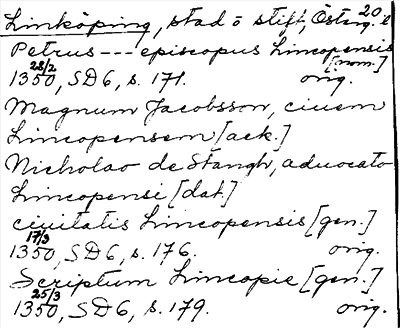 Linköping, stad o stift, Österg. 20
Petrus --- episcopus Lincopensis
[nom.]
28/2
1350, SD6, s. 171. orig.
Magnum Jacobsson, ciuem
Lincopensem [ack.]
Nicholao de Stangh, aduocato
Lincopensi [dat.]
ciuitatis Lincopensis [gen.]
17/3
1350, SD6, s. 176. orig.
Scriptum Lincopie [gen.]
25/3
1350, SD6, s. 179. orig.